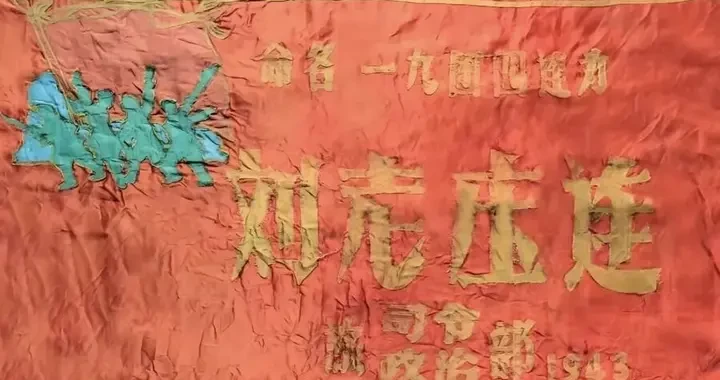 命名 一九团四连为
刘老庄连
旅 司令部
政治部 1943